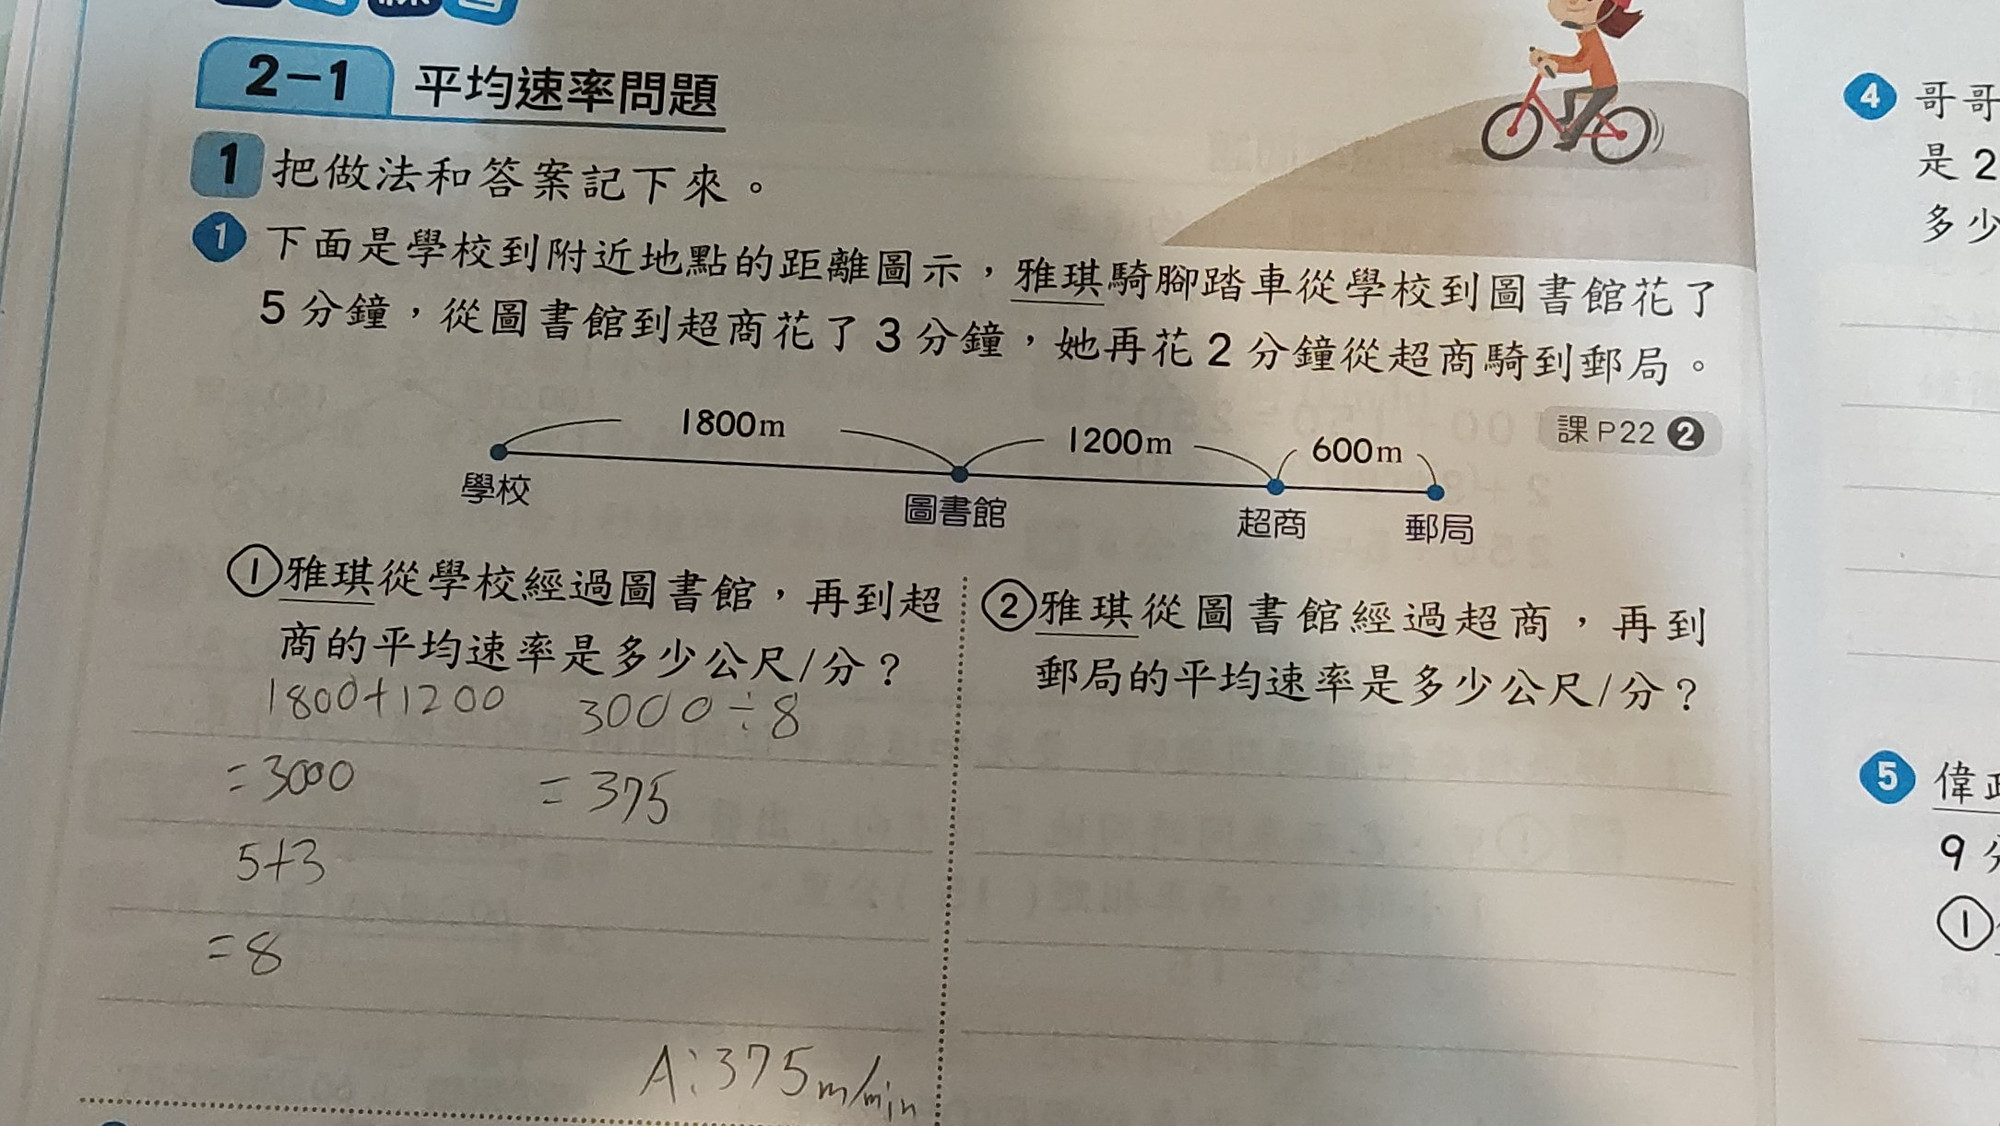 2-1 平均速率問題
1 把做法和答案記下來。
1 下面是學校到附近地點的距離圖示，雅琪騎腳踏車從學校到圖書館花了
5分鐘，從圖書館到超商花了3分鐘，她再花2分鐘從超商騎到郵局。
課P22 2
1800m 1200m 600m
學校 圖書館 超商 郵局
①雅琪從學校經過圖書館，再到超
商的平均速率是多少公尺/分？
1800+1200 3000÷8
=3000 =375
5+3
=8
A:375m/min
②雅琪從圖書館經過超商，再到
郵局的平均速率是多少公尺/分？
4 哥哥
是2
多少
5 偉
9分
①